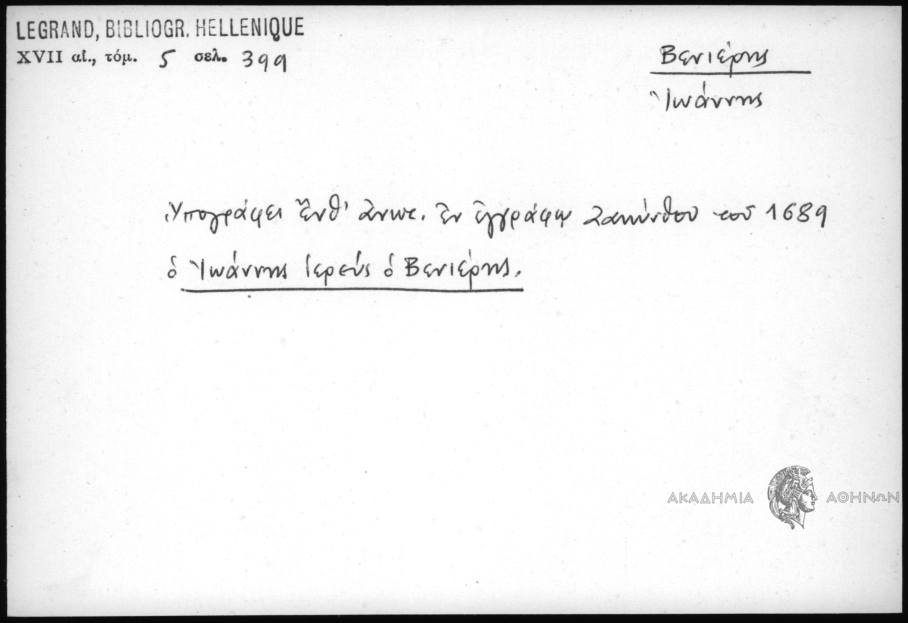 LEGRAND, BIBLIOGR. HELLENIQUE
XVII αἰ., τόμ. 5 σελ. 399
Βενιέρης
Ἰωάννης
Ὑπογράφει ἔνθ' ἄνωτ. ἐν ἐγγράφῳ Ζακύνθου τοῦ 1689
ὁ Ἰωάννης ἱερεύς ὁ Βενιέρης.
ΑΚΑΔΗΜΙΑ ΑΘΗΝΩΝ